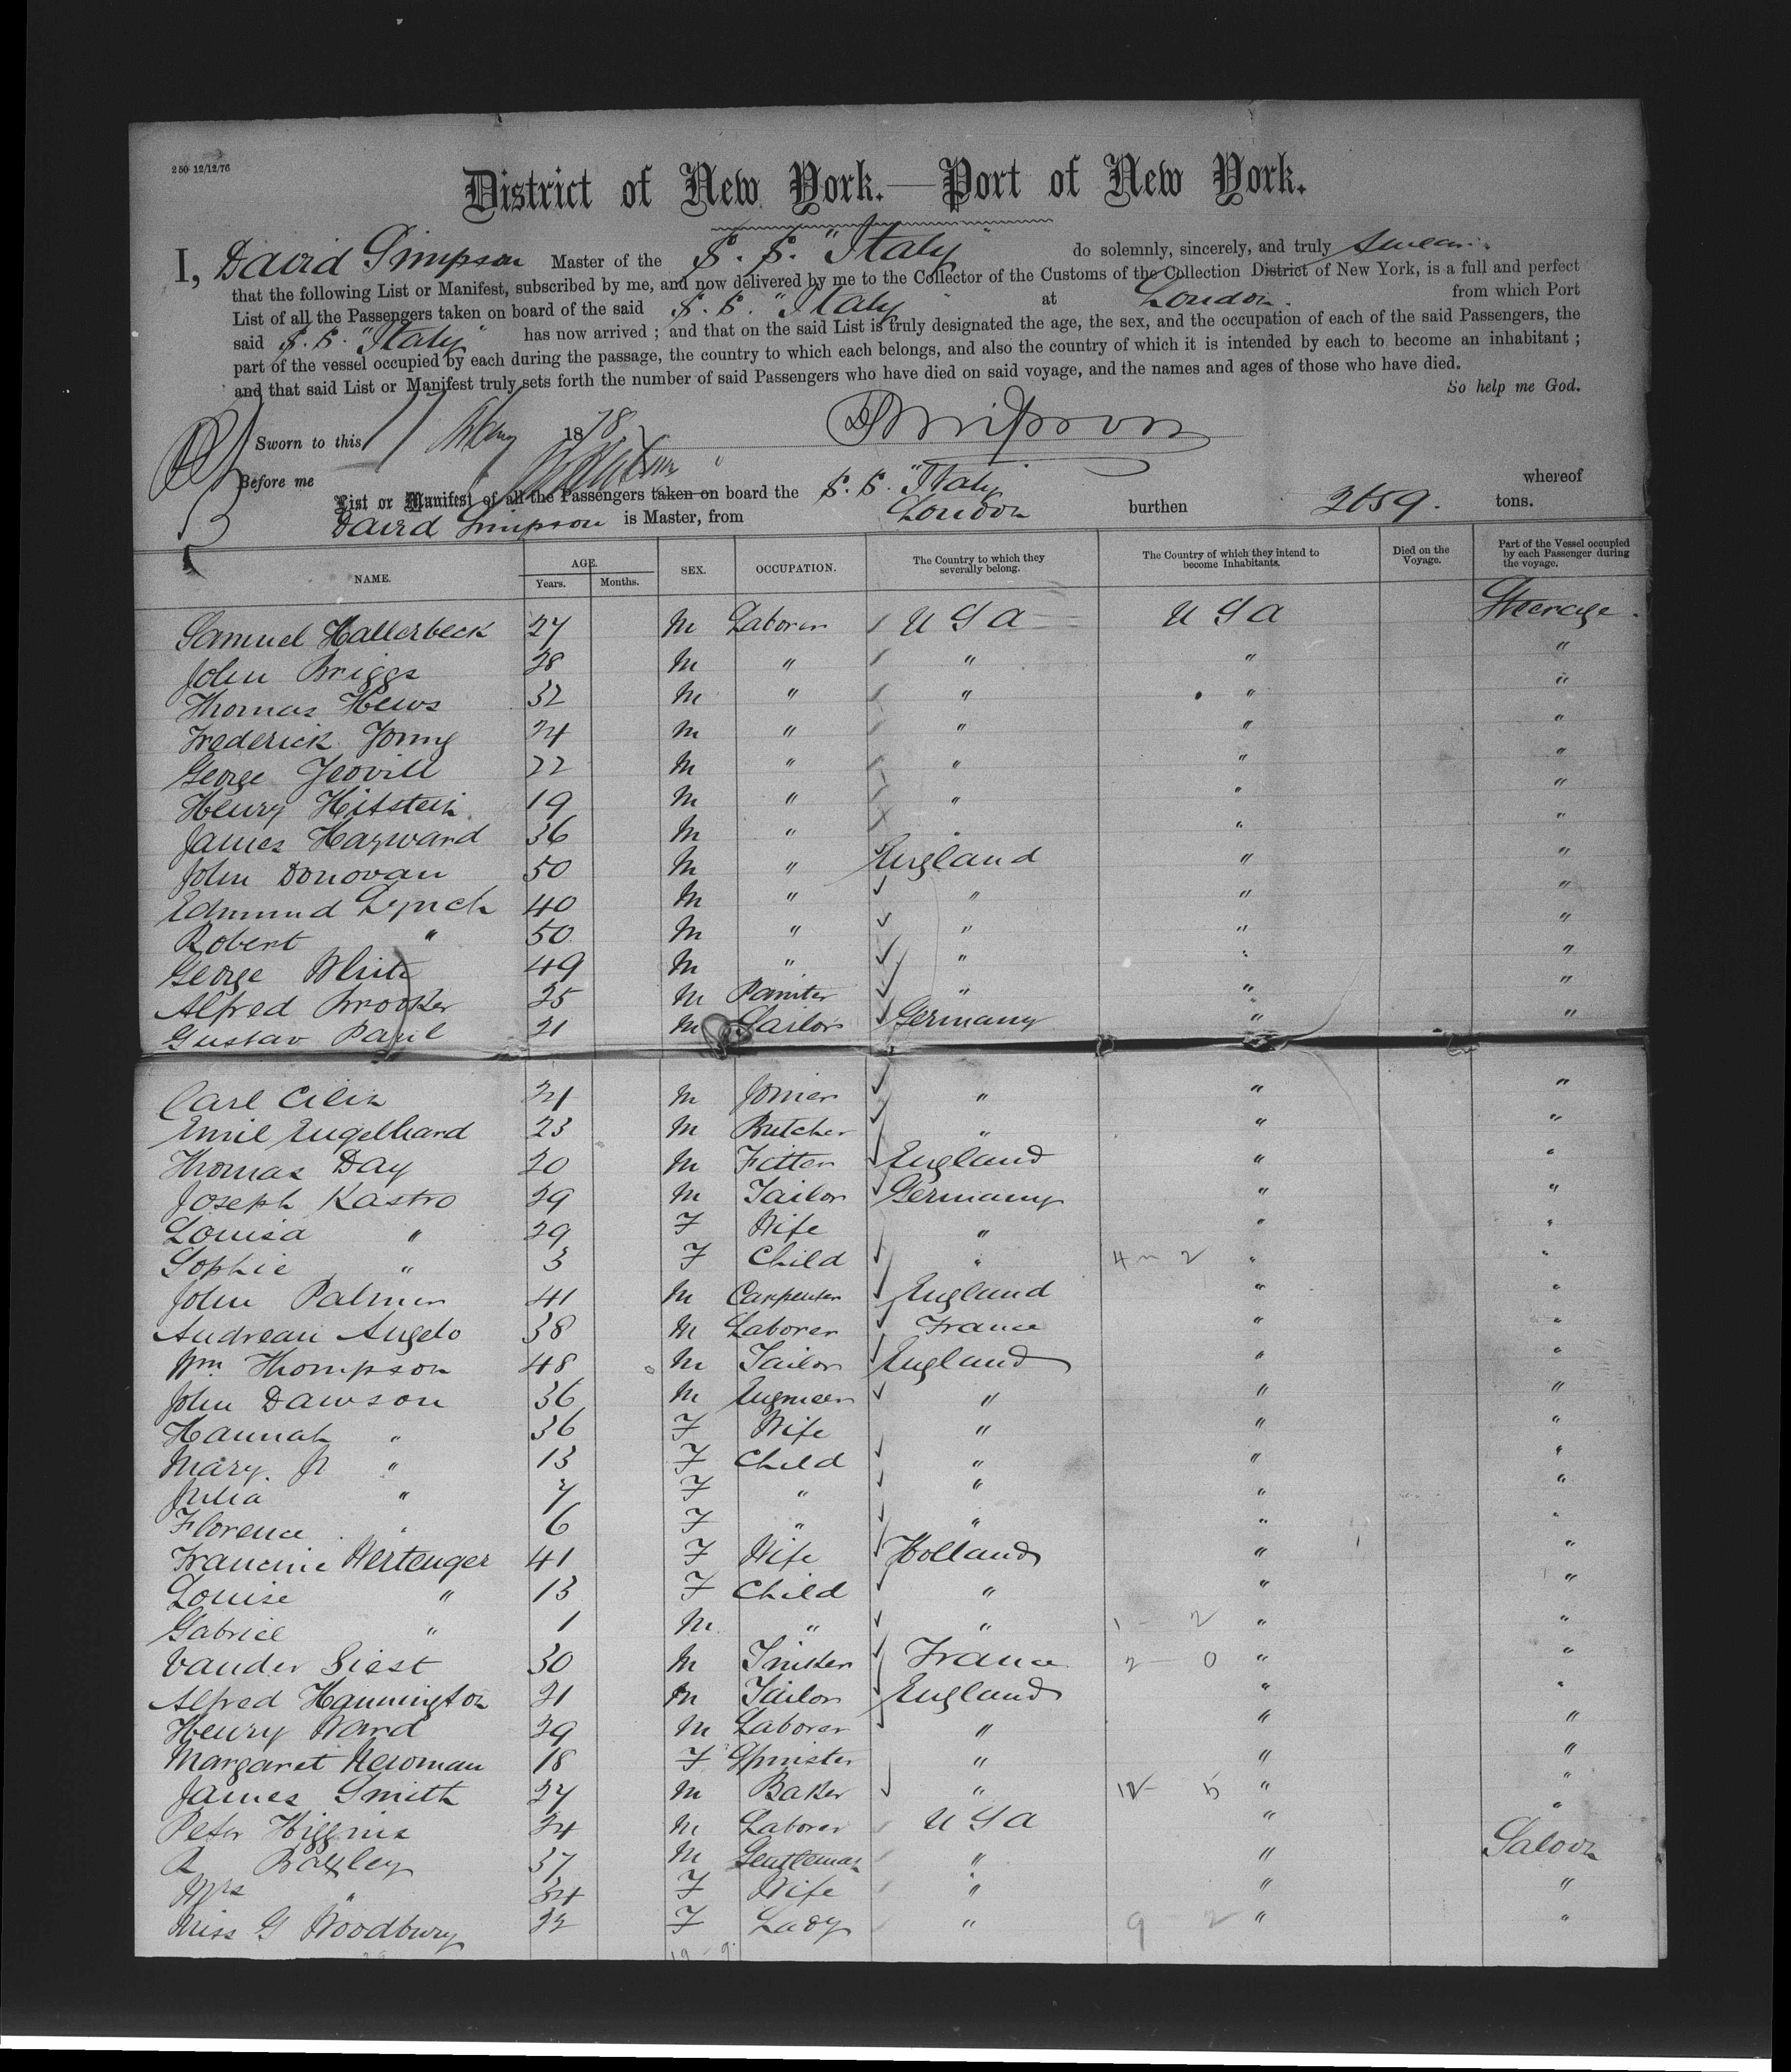 250 12/12/76
District of New York.—Port of New York.
I, David Simpson Master of the S. S. "Italy" do solemnly, sincerely, and truly swear
that the following List or Manifest, subscribed by me, and now delivered by me to the Collector of the Customs of the Collection District of New York, is a full and perfect
List of all the Passengers taken on board of the said S. S. "Italy" at London. from which Port
said S. S. "Italy" has now arrived ; and that on the said List is truly designated the age, the sex, and the occupation of each of the said Passengers, the
part of the vessel occupied by each during the passage, the country to which each belongs, and also the country of which it is intended by each to become an inhabitant ;
and that said List or Manifest truly sets forth the number of said Passengers who have died on said voyage, and the names and ages of those who have died.
So help me God.
Sworn to this 1 May 1878 DSimpson
Before me
List or Manifest of all the Passengers taken on board the S. S. "Italy whereof
David Simpson is Master, from London burthen 2659. tons.
NAME. AGE. Years. Months. SEX. OCCUPATION. The Country to which they severally belong. The Country of which they intend to become Inhabitants. Died on the Voyage. Part of the Vessel occupied by each Passenger during the voyage.
Samuel Hallerbeck 27 M Laborer U S A U S A Steerage.
John Briggs 28 M " " " "
Thomas Hews 32 M " " " "
Frederick Young 24 M " " " "
George Yeovill 22 M " " " "
Henry 19 M " " " "
James Hayward 36 M " " " "
John Donovan 50 M " England " "
Edmund Lynch 40 M " " " "
Robert " 50 M " " " "
George White 49 M " " " "
Alfred Brooker 25 M Painter " " "
Gustav Paul 21 M Sailor Germany " "
Carl 21 M Joiner " " "
Emil Engelhard 23 M Butcher " " "
Thomas Day 20 M Fitter England " "
Joseph Kastro 29 M Tailor Germany " "
Louisa " 29 F Wife " " "
Sophie " 3 F Child " 4 - 2 " "
John Palmer 41 M Carpenter England " "
Andrean Angelo 38 M Laborer France " "
Wm. Thompson 48 M Tailor England " "
John Dawson 36 M Engineer " " "
Hannah " 36 F Wife " " "
Mary. " 13 F Child " " "
Julia " 7 F " " " "
Florence " 6 F " " " "
Francine Wertenger 41 F Wife Holland " "
Louise " 13 F Child " " "
Gabriel " 1 M " " 1 - 2 " "
Vander Siest 30 M France 2 - 0 " "
Alfred Hannington 21 M Tailor England " "
Henry Ward 29 M Laborer " " "
Margaret Newman 18 F Spinster " " "
James Smith 27 M Baker " 12 - 5 " "
Peter Higgins 24 M Laborer U S A " "
R Baxley 37 M Gentleman " " Saloon
Mrs " 34 F Wife " " "
Miss G Woodbury 22 F Lady " 9 - 2 " "
19 - 9